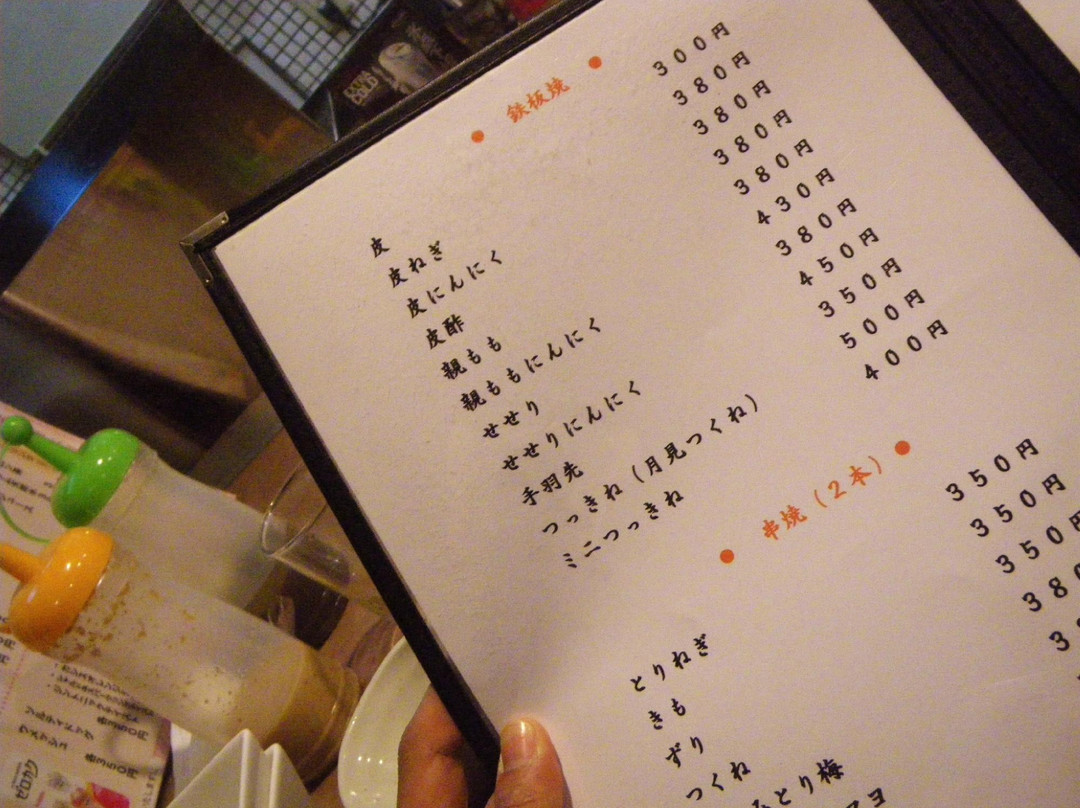 鉄板焼
皮 300円
皮ねぎ 380円
皮にんにく 380円
皮酢 380円
親もも 380円
親ももにんにく 430円
せせり 380円
せせりにんにく 450円
手羽先 350円
つっきね（月見つくね） 500円
ミニつっきね 400円
串焼（2本）
とりねぎ 350円
きも 350円
ずり 350円
つくね 380
とり梅
EXTRA COLD
各350円
ソルティドッグ
各350円
ゼロカク